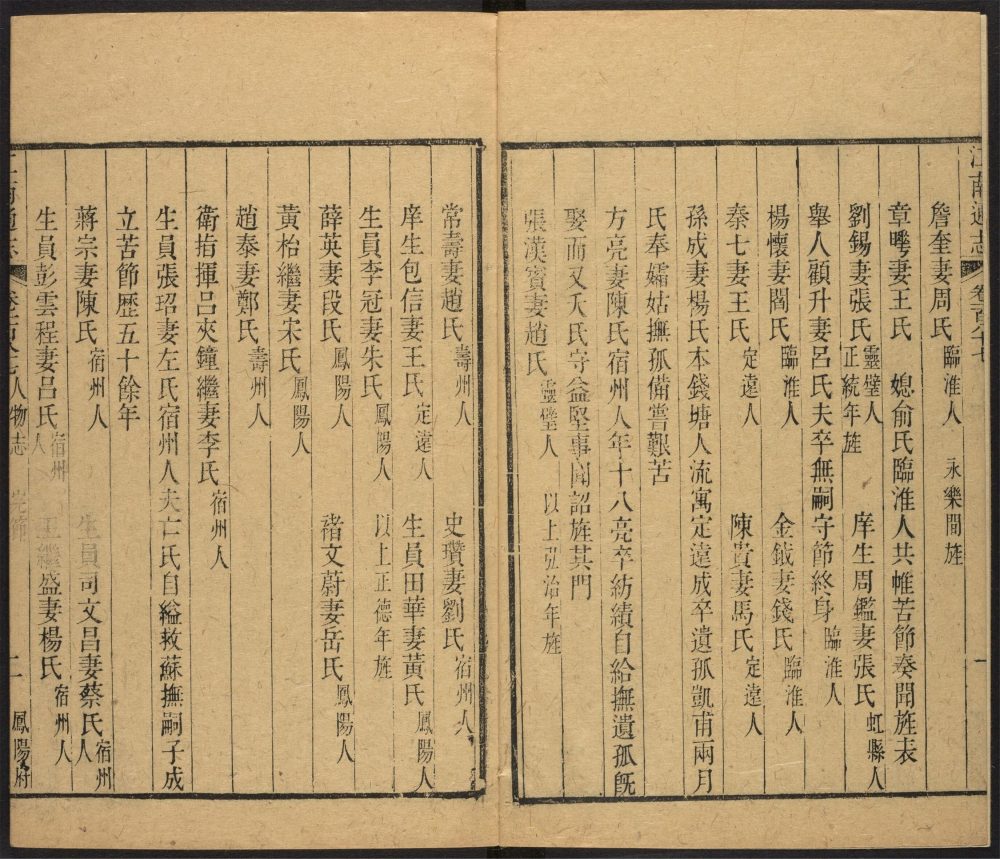 江南通志 卷一百八十七 一
詹奎妻周氏 臨淮人 永樂間旌
章㬜妻王氏 媳俞氏臨淮人共帷苦節奏聞旌表
劉錫妻張氏 靈璧人 正統年旌 庠生周鑑妻張氏 虹縣人
舉人顧升妻呂氏夫卒無嗣守節終身 臨淮人
楊懷妻閻氏 臨淮人 金鉞妻錢氏 臨淮人
秦七妻王氏 定遠人 陳貴妻馬氏 定遠人
孫成妻楊氏本錢塘人流寓定遠成卒遺孤凱甫兩月
氏奉孀姑撫孤備嘗艱苦
方亮妻陳氏宿州人年十八亮卒紡績自給撫遺孤旣
娶而又夭氏守益堅事聞詔旌其門
張漢賓妻趙氏 靈璧人 以上弘治年旌
常壽妻趙氏 壽州人 史瓚妻劉氏 宿州人
庠生包信妻王氏 定遠人 生員田華妻黃氏 鳳陽人
生員李冠妻朱氏 鳳陽人 以上正德年旌
薛英妻段氏 鳳陽人 褚文蔚妻岳氏 鳳陽人
黃枱繼妻宋氏 鳳陽人
趙泰妻鄭氏 壽州人
衛指揮呂夾鐘繼妻李氏 宿州人
生員張玿妻左氏宿州人夫亡氏自縊救蘇撫嗣子成
立苦節歷五十餘年
蔣宗妻陳氏 宿州人 生員司文昌妻蔡氏 宿州人
生員彭雲程妻呂氏 宿州人 王繼盛妻楊氏 宿州人
江南通志 卷一百八十七 人物志 完節 二 鳳陽府